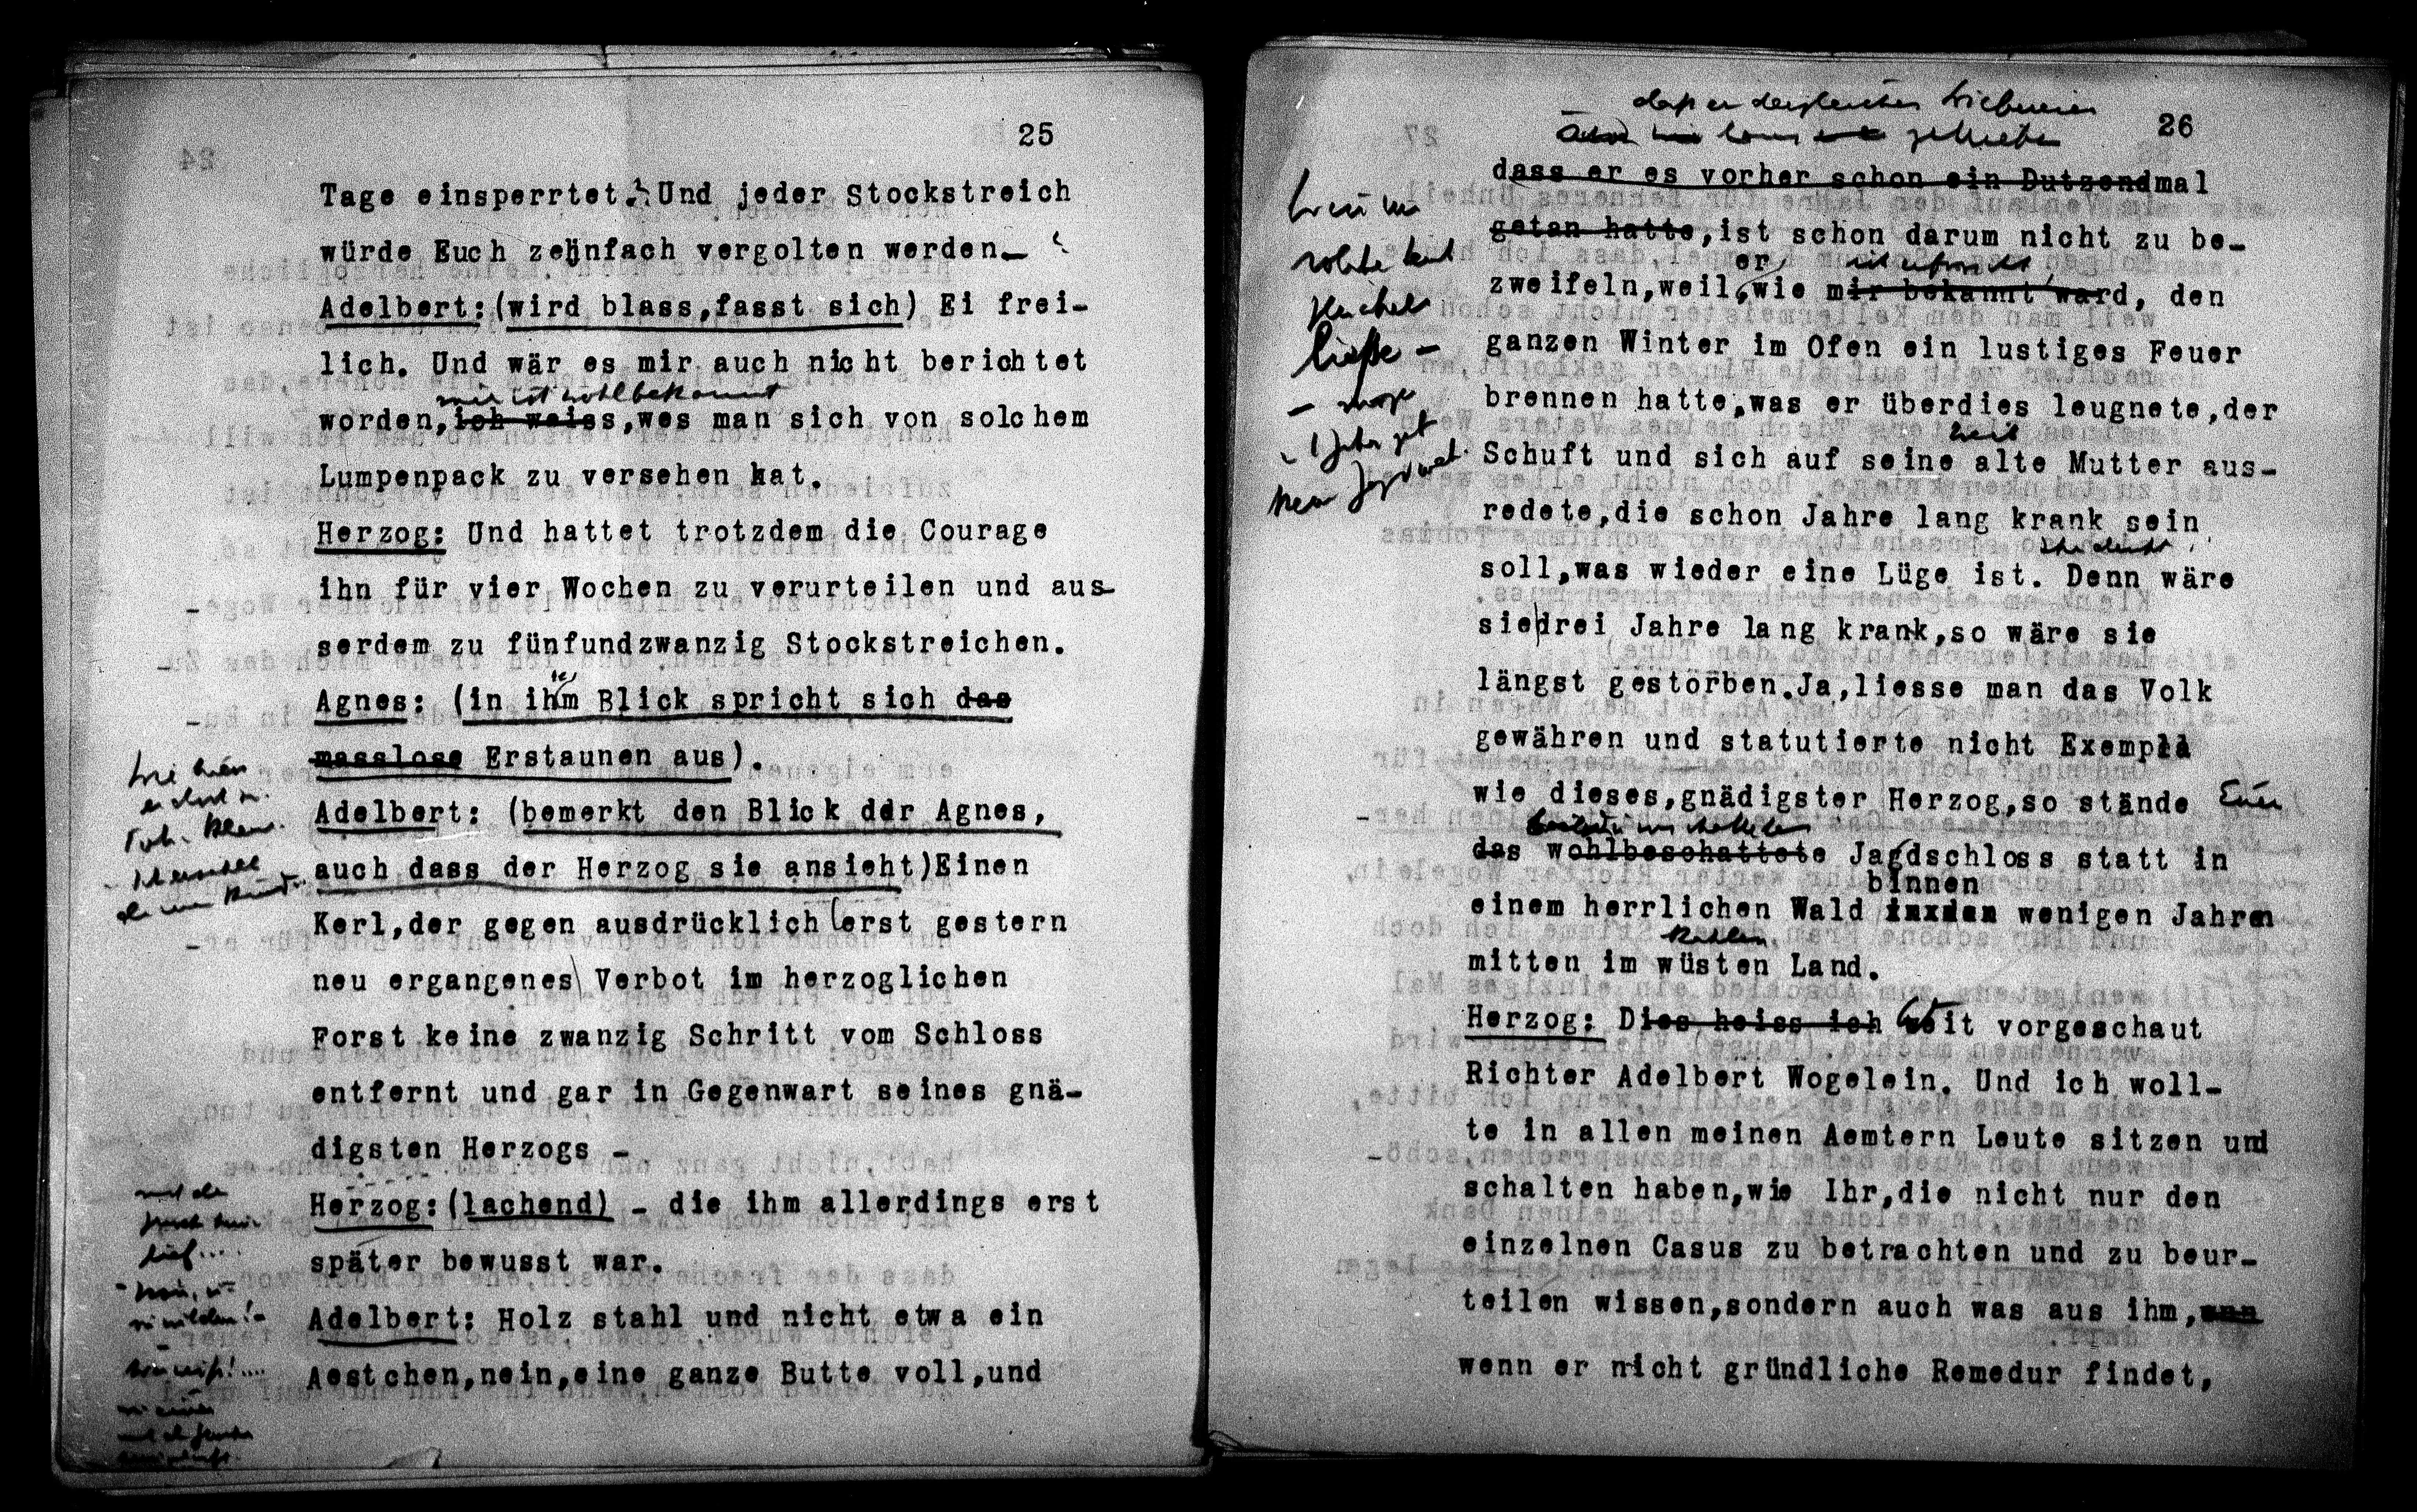 25
Tage einsperrtet? Und jeder Stockstreich
würde Euch zehnfach vergolten werden-
Adelbert:(wird blass,fasst sich) Ei frei-
lich. Und wär es mir auch nicht berichtet
mir ist wohlbekannt
worden,ich weiss,wes man sich von solchem
Lumpenpack zu versehen hat.
Herzog: Und hattet trotzdem die Courage
ihn für vier Wochen zu verurteilen und aus-
serdem zu fünfundzwanzig Stockstreichen.
Agnes: (in ihm Blick spricht sich das
masslose Erstaunen aus).
Adelbert: (bemerkt den Blick der Agnes,
auch dass der Herzog sie ansieht)Einen
Kerl,der gegen ausdrücklich erst gestern
neu ergangenes Verbot im herzoglichen
Forst keine zwanzig Schritt vom Schloss
entfernt und gar in Gegenwart seines gnä-
digsten Herzogs -
Herzog:(lachend) - die ihm allerdings erst
später bewusst war.
Adelbert: Holz stahl und nicht etwa ein
Aestchen,nein,eine ganze Butte voll,und
26
daß er dergleichen
dass er es vorher schon ein Dutzendmal
getan hatte,ist schon darum nicht zu be-
er
zweifeln,weil,wie mir bekannt ward, den
ganzen Winter im Ofen ein lustiges Feuer
brennen hatte,was er überdies leugnete,der
Schuft und sich auf seine alte Mutter aus-
redete,die schon Jahre lang krank sein
soll,was wieder eine Lüge ist. Denn wäre
sie drei Jahre lang krank,so wäre sie
längst gestorben.Ja,liesse man das Volk
gewähren und statutierte nicht Exempla
wie dieses,gnädigster Herzog,so stände Euer
das wohlbeschattete Jagdschloss statt in
binnen
einem herrlichen Wald in den wenigen Jahren
kahlen
mitten im wüsten Land.
Herzog: Dies heiss ich weit vorgeschaut
Richter Adelbert Wogelein. Und ich woll-
te in allen meinen Aemtern Leute sitzen und
schalten haben,wie Ihr,die nicht nur den
einzelnen Casus zu betrachten und zu beur-
teilen wissen,sondern auch was aus ihm,
wenn er nicht gründliche Remedur findet,